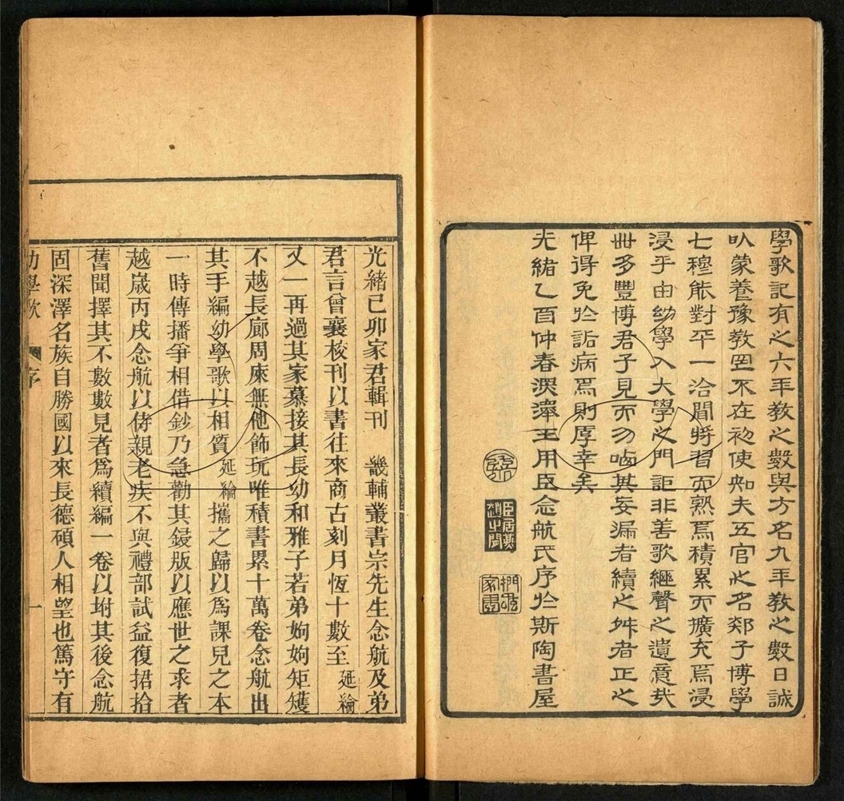 學歌記有之六年教之數與方名九年教之數日誠
以蒙養豫教罔不在初使知夫五官之名郯子博學
七穆能對平一洽聞將習而熟焉積累而擴充焉浸
浸乎由幼學入大學之門詎非善歌繼聲之遺意哉
世多豐博君子見而勿嗤其妄漏者續之舛者正之
俾得免於詬病焉則厚幸矣
光緒乙酉仲春深澤王用臣念航氏序於斯陶書屋
光緒己卯家君輯刊 畿輔叢書宗先生念航及弟
君言曾襄校刊以書往來商古刻月恆十數至延綸
又一再過其家慕接其長幼和雅子若弟姁姁矩矱
不越長廊周庑無他飾玩唯積書累十萬卷念航出
其手編幼學歌以相質延綸攜之歸以為課兒之本
一時傳播爭相借鈔乃急勸其鋟版以應世之求者
越歲丙戌念航以侍親老疾不與禮部試益復捃拾
舊聞擇其不數數見者為續編一卷以坿其後念航
固深澤名族自勝國以來長德碩人相望也篤守有
幼學歌 序 一